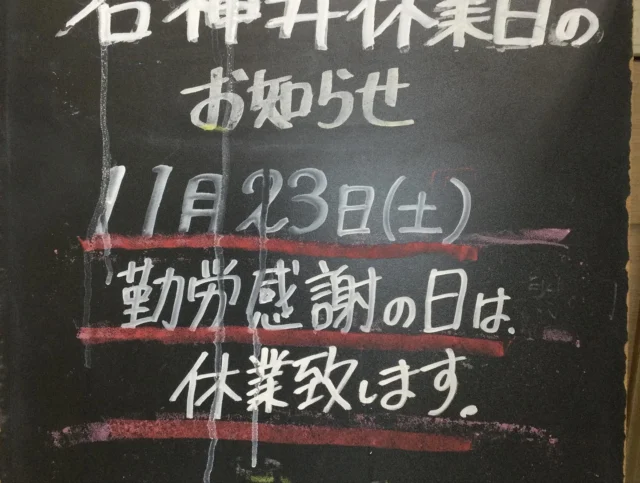 石神井休業日の
お知らせ
11月23日(土)
勤労感謝の日は、
休業致します。